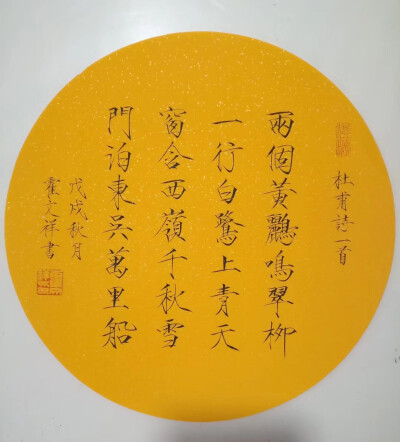 杜甫詩一首
兩個黃鸝鳴翠柳
一行白鷺上青天
窗含西嶺千秋雪
門泊東吳萬里船
戊戌秋月
霍文祥書